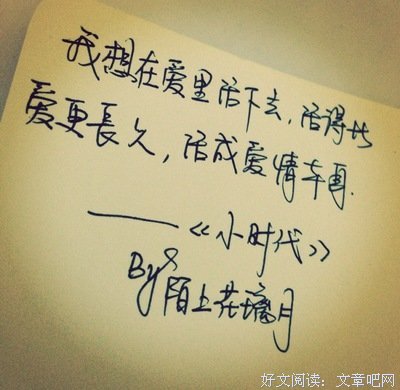 我想在爱里活下去,活得比
爱更長久,活成爱情本身.
——《小时代》
By 陌上花璃月
好文阅读:文章吧网